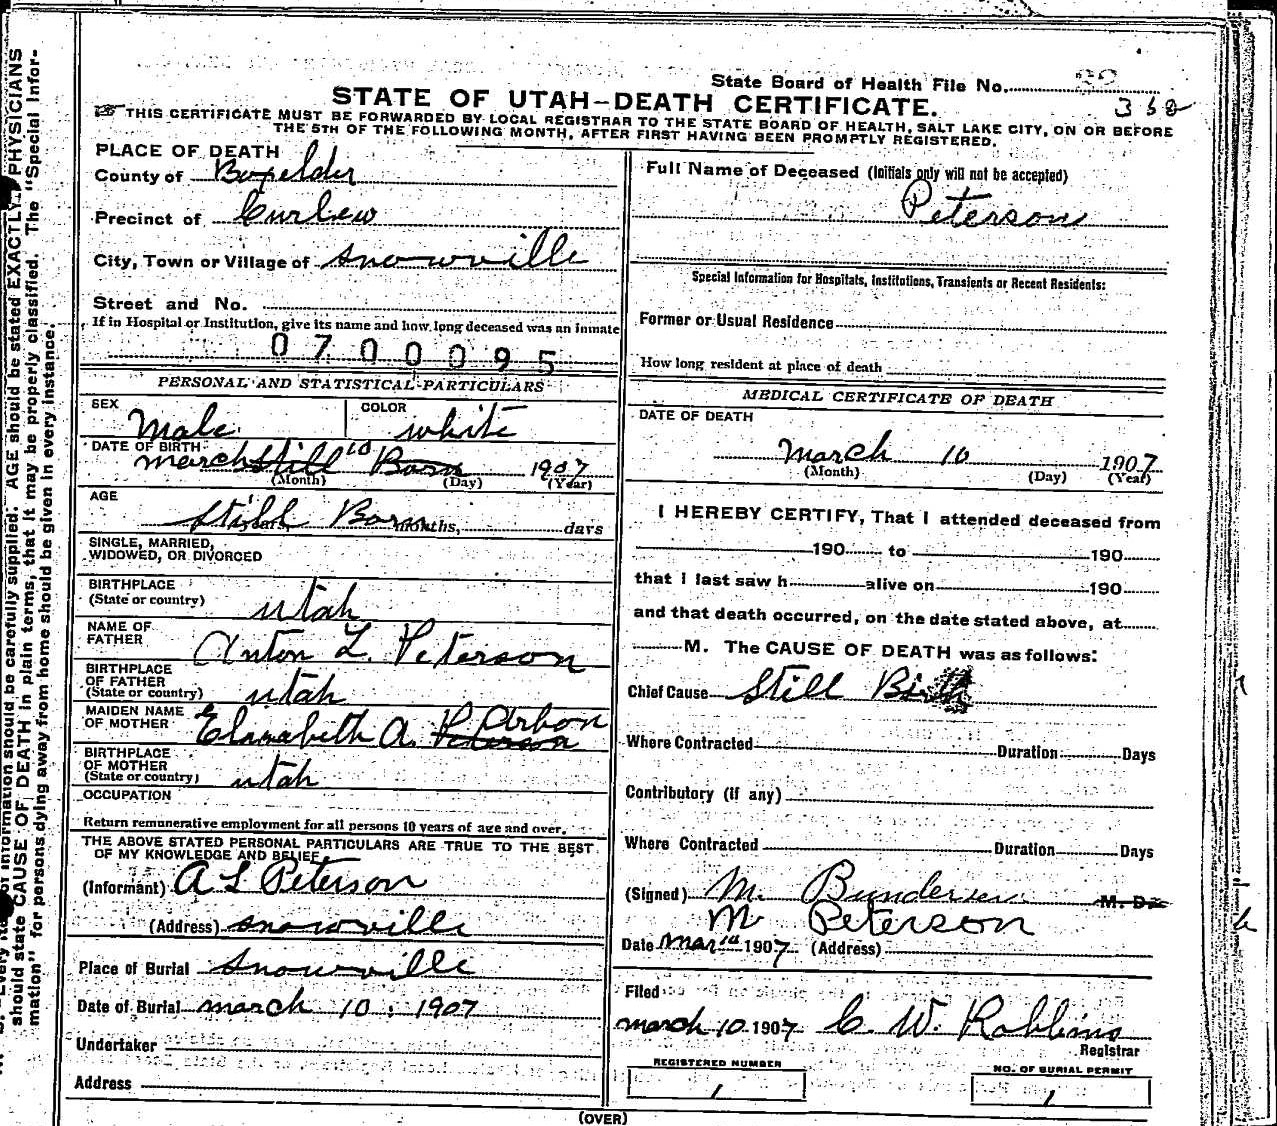 State Board of Health File No. 
362
STATE OF UTAH—DEATH CERTIFICATE.
THIS CERTIFICATE MUST BE FORWARDED BY LOCAL REGISTRAR TO THE STATE BOARD OF HEALTH, SALT LAKE CITY, ON OR BEFORE
THE 5TH OF THE FOLLOWING MONTH, AFTER FIRST HAVING BEEN PROMPTLY REGISTERED.
PLACE OF DEATH
County of Boxelder
Precinct of Curlew
City, Town or Village of Snowville
Street and No.
If in Hospital or Institution, give its name and how long deceased was an inmate
0700095
PERSONAL AND STATISTICAL PARTICULARS
SEX Male COLOR white
DATE OF BIRTH march Still 10 Born 1907
(Month) (Day) (Year)
AGE
Still Born years, months, days
SINGLE, MARRIED,
WIDOWED, OR DIVORCED
BIRTHPLACE
(State or country) utah
NAME OF
FATHER Anton L. Peterson
BIRTHPLACE
OF FATHER
(State or country) utah
MAIDEN NAME
OF MOTHER Elizabeth A. Peterson Arbon
BIRTHPLACE
OF MOTHER
(State or country) utah
OCCUPATION
Return remunerative employment for all persons 10 years of age and over.
THE ABOVE STATED PERSONAL PARTICULARS ARE TRUE TO THE BEST
OF MY KNOWLEDGE AND BELIEF
(Informant) A L Peterson
(Address) Snowville
Place of Burial Snowville
Date of Burial march 10, 1907
Undertaker
Address
Full Name of Deceased (Initials only will not be accepted)
Peterson
Special Information for Hospitals, Institutions, Transients or Recent Residents:
Former or Usual Residence
How long resident at place of death
MEDICAL CERTIFICATE OF DEATH
DATE OF DEATH
March 10 1907
(Month) (Day) (Year)
I HEREBY CERTIFY, That I attended deceased from
190 to 190
that I last saw h alive on 190
and that death occurred, on the date stated above, at
M. The CAUSE OF DEATH was as follows:
Chief Cause Still Birth
Where Contracted Duration Days
Contributory (if any)
Where Contracted Duration Days
(Signed) M. Bundersen M. D.
M Peterson
Date Mar 10 1907 (Address)
Filed
march 10 1907 C. W. Robbins
Registrar
REGISTERED NUMBER
1
NO. OF BURIAL PERMIT
1
(OVER)
information should be carefully supplied. AGE should be stated EXACTLY. PHYSICIANS
should state CAUSE OF DEATH in plain terms, that it may be properly classified. The "Special Infor-
mation" for persons dying away from home should be given in every instance.